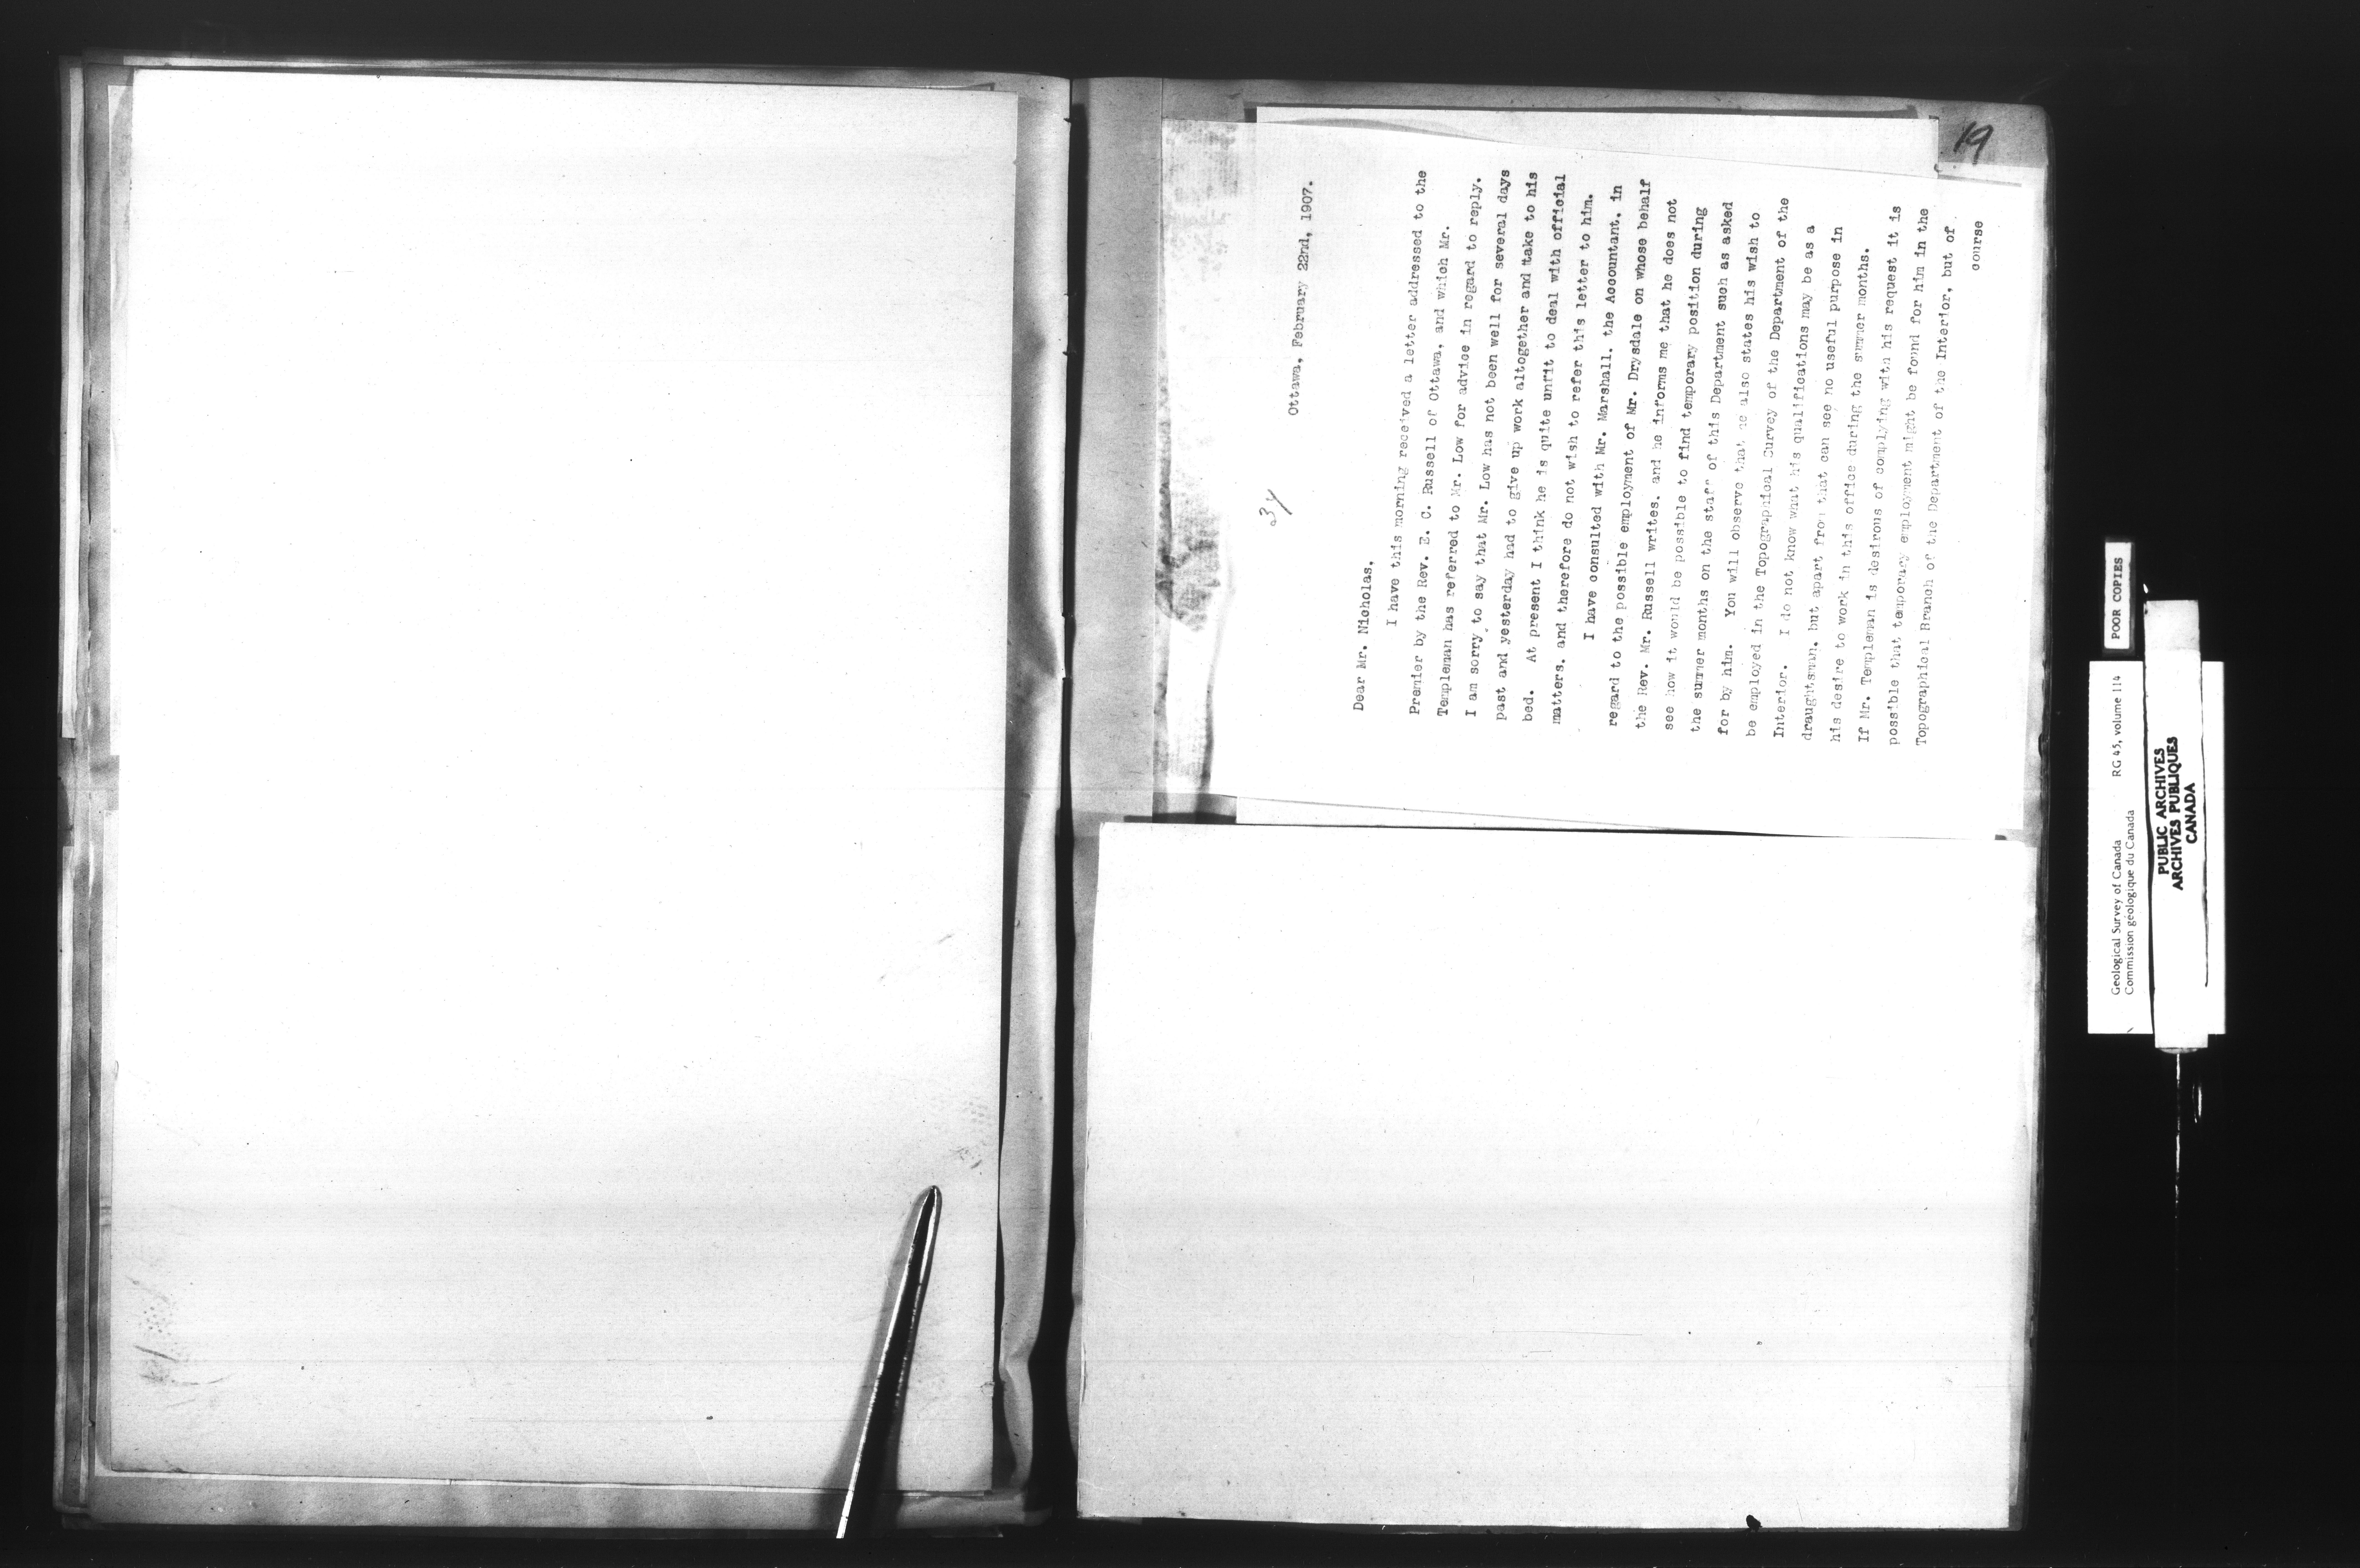 19
34
Ottawa, February 22nd, 1907.
Dear Mr. Nicholas,
I have this morning received a letter addressed to the
Premier by the Rev. E. C. Russell of Ottawa, and which Mr.
Templeman has referred to Mr. Low for advice in regard to reply.
I am sorry to say that Mr. Low has not been well for several days
past and yesterday had to give up work altogether and take to his
bed. At present I think he is quite unfit to deal with official
matters, and therefore do not wish to refer this letter to him.
I have consulted with Mr. Marshall, the Accountant, in
regard to the possible employment of Mr. Drysdale on whose behalf
the Rev. Mr. Russell writes, and he informs me that he does not
see how it would be possible to find temporary position during
the summer months on the staff of this Department such as asked
for by him. You will observe that he also states his wish to
be employed in the Topographical Survey of the Department of the
Interior. I do not know what his qualifications may be as a
draughtsman, but apart from that can see no useful purpose in
his desire to work in this office during the summer months.
If Mr. Templeman is desirous of complying with his request it is
possible that temporary employment might be found for him in the
Topographical Branch of the Department of the Interior, but of
course
POOR COPIES
Geological Survey of Canada RG 45, volume 114
Commission géologique du Canada
PUBLIC ARCHIVES
ARCHIVES PUBLIQUES
CANADA